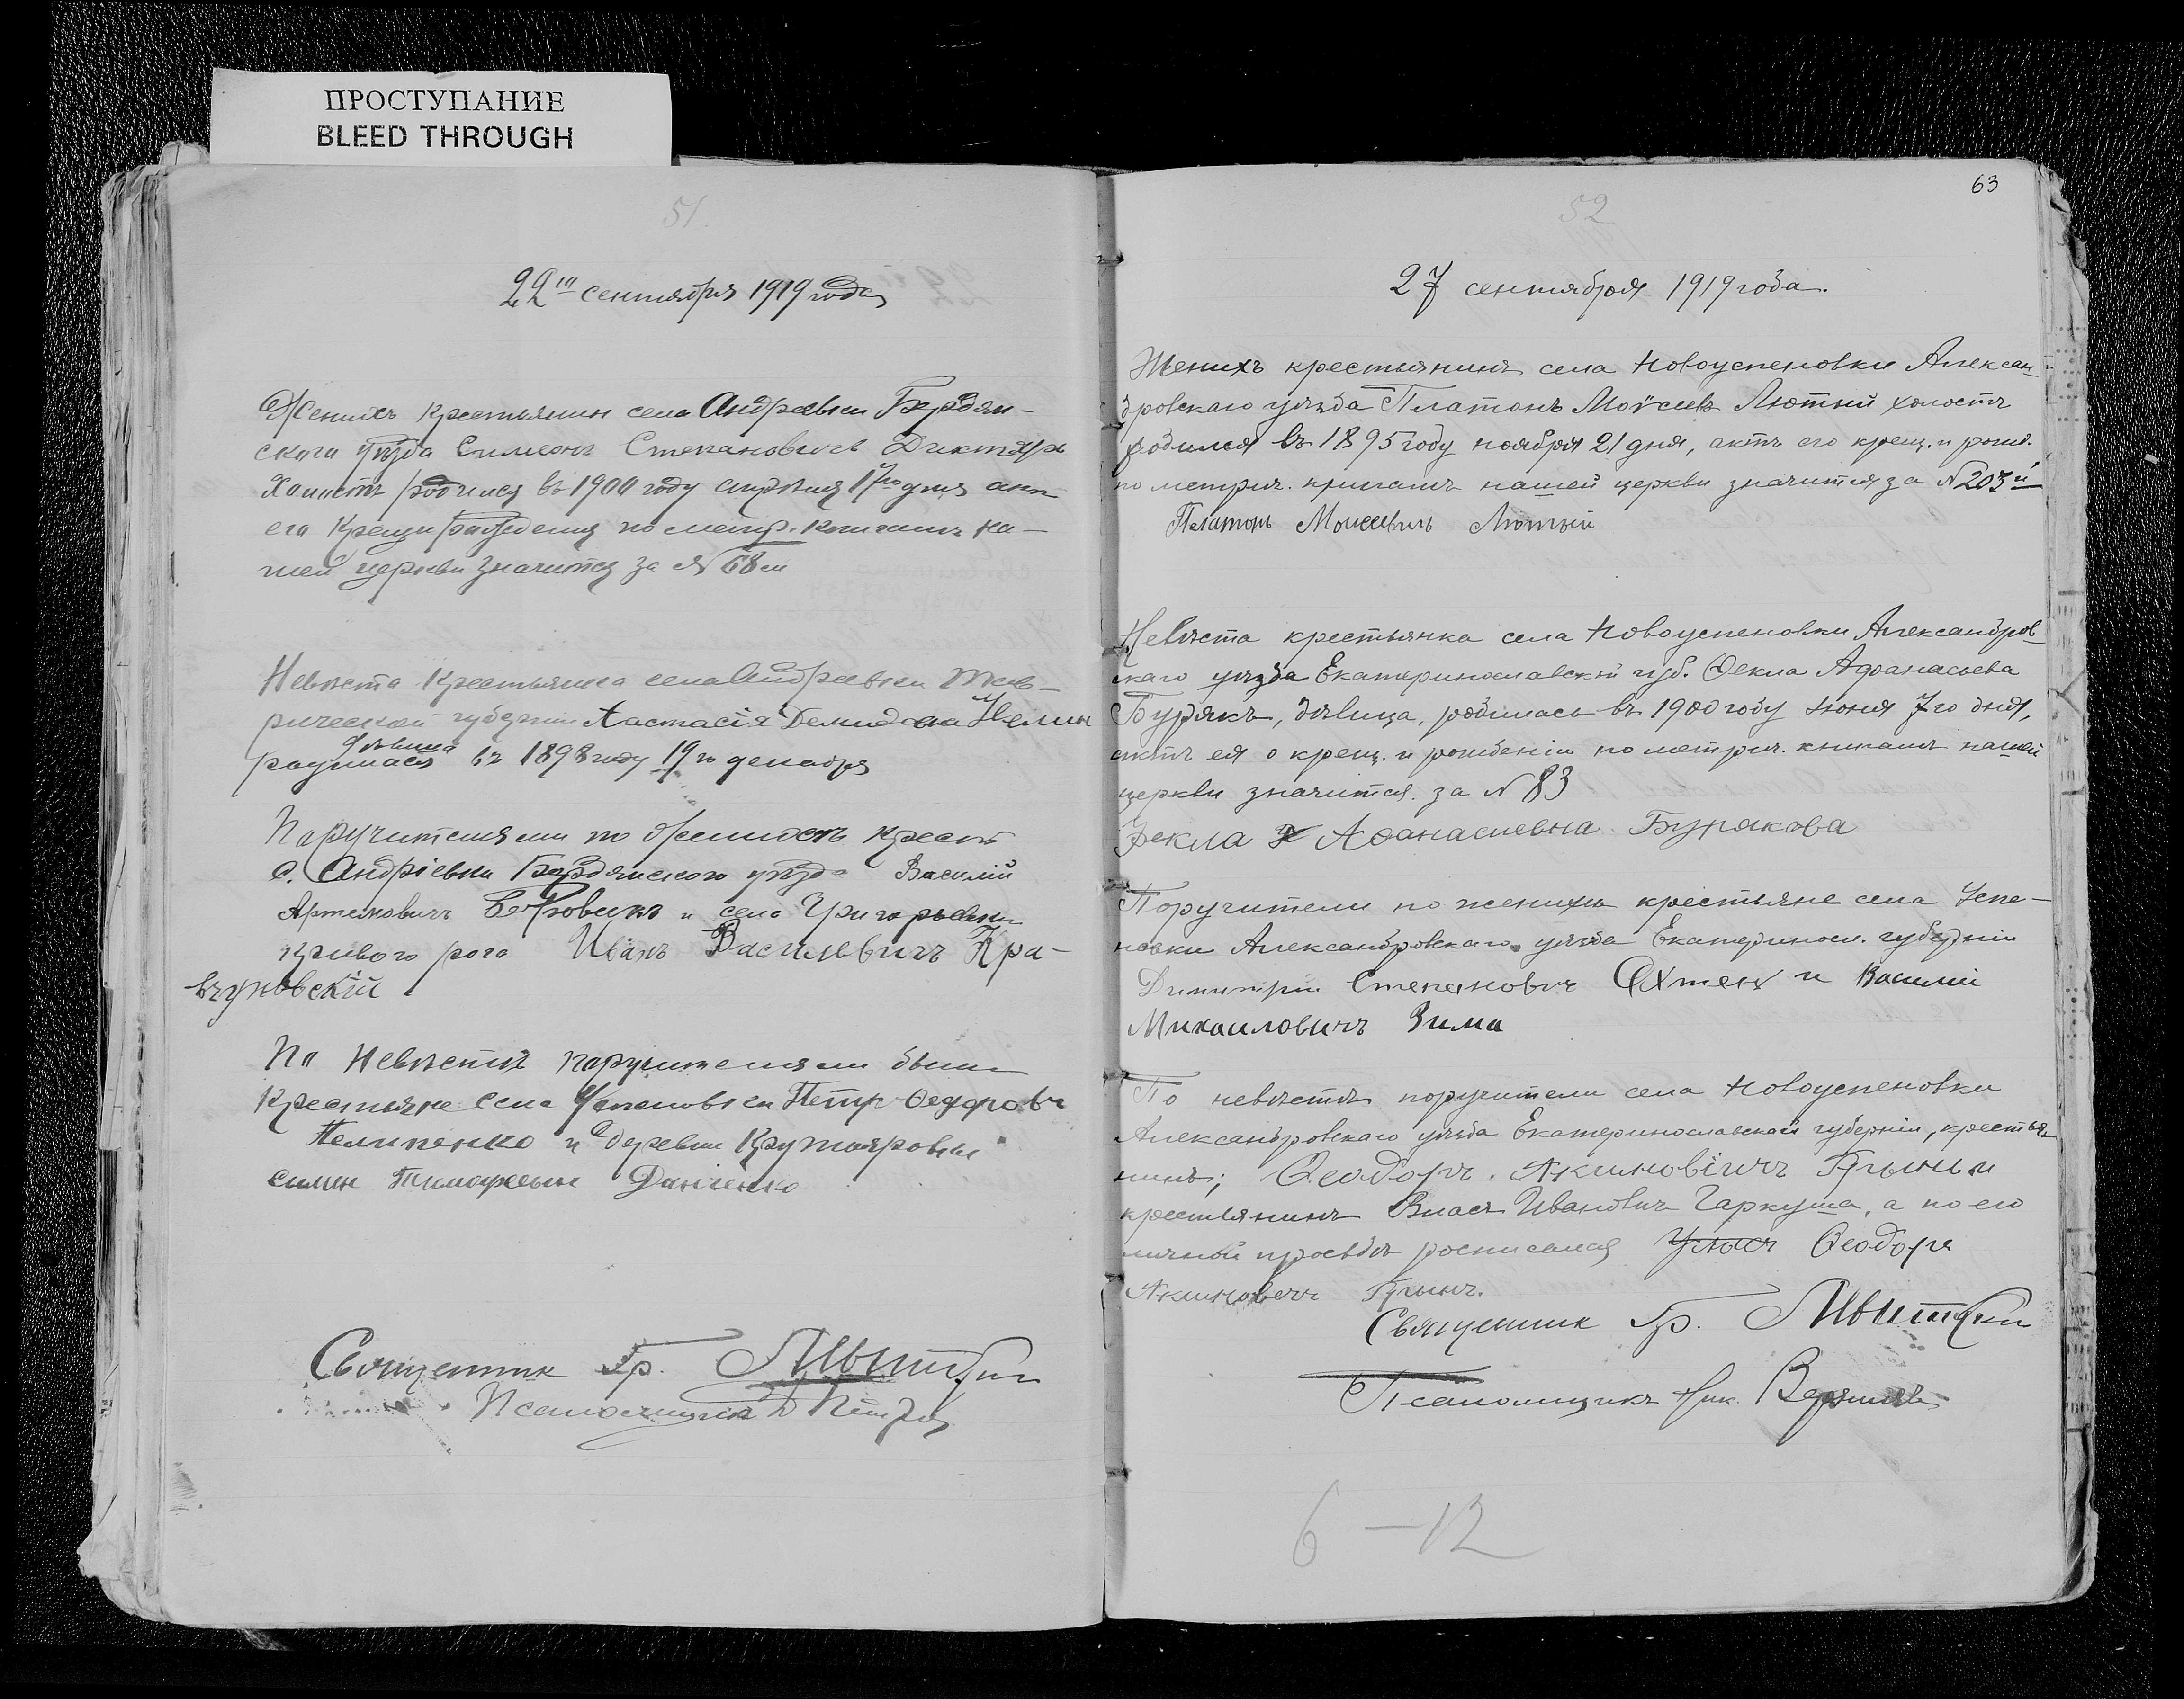 ПРОСТУПАНИЕ
BLEED THROUGH
51.
22го сентября 1919 года
Женихъ крестьянин села Андреевки Бердян-
скаго уѣзда Симеонъ Степановичъ Диктяръ
Холостъ родился въ 1900 году апрѣля 17го дня акт
его Крещ и рождения по метр. книгамъ на-
шей церкви значится за № 68 м
Невѣста Крестьянка села Андреевки Тав-
рической губернии Анастасія Демидова
дѣвица
родилась въ 1898 году 19го декабря
Поручителями по женихѣ крест
с. Андріевки Бердянского уѣзда Василій
Артемовичъ и села Григорьевки
Кривого рога Иванъ Васильевичъ Кра-
вчуновскій
По Невѣстѣ поручителями были
Крестьяне села Успеновки Петръ Федоровъ
Пелипенко и деревни Крутояровки
Симон Тимофеевич Данченко
Священник Гр.
Псаломщикъ
63
52
27 сентября 1919 года.
Женихъ крестьянинъ села Новоуспеновки Алексан-
дровскаго уѣзда Платонъ Моѵсеевъ Лютый холостъ
родился въ 1895 году ноября 21 дня, актъ его крещ. и рожд.
по метрич. книгамъ нашей церкви значится за № 203й
Платонъ Моисеевичъ Лютый
Невѣста крестьянка села Новоуспеновки Александров-
скаго уѣзда Екатеринославской губ. Ѳекла Афанасьева
Бурякъ, дѣвица, родилась въ 1900 году Июня 7го дня,
актъ ея о крещ. и рожденіи по метрич. книгамъ нашей
церкви значится за № 83
Фекла Афанасиевна Бурякова
Поручители по женихѣ крестьяне села Успе-
новки Александровскаго уѣзда Екатериносл. губерніи
Димитрій Степанович Охтень и Василій
Михаиловичъ Зима
По невѣстѣ поручители села Новоуспеновки
Александровскаго уѣзда Екатеринославской губерніи, крестья-
нинъ; Ѳеодоръ Акимовичъ Грынь и
крестьянинъ Власъ Ивановичъ Гаркуша, а по его
личной просьбѣ росписался Ѳеодоръ
Акимовичъ Грынь.
Священник Гр.
Псаломщикъ Ник.
6 – 12